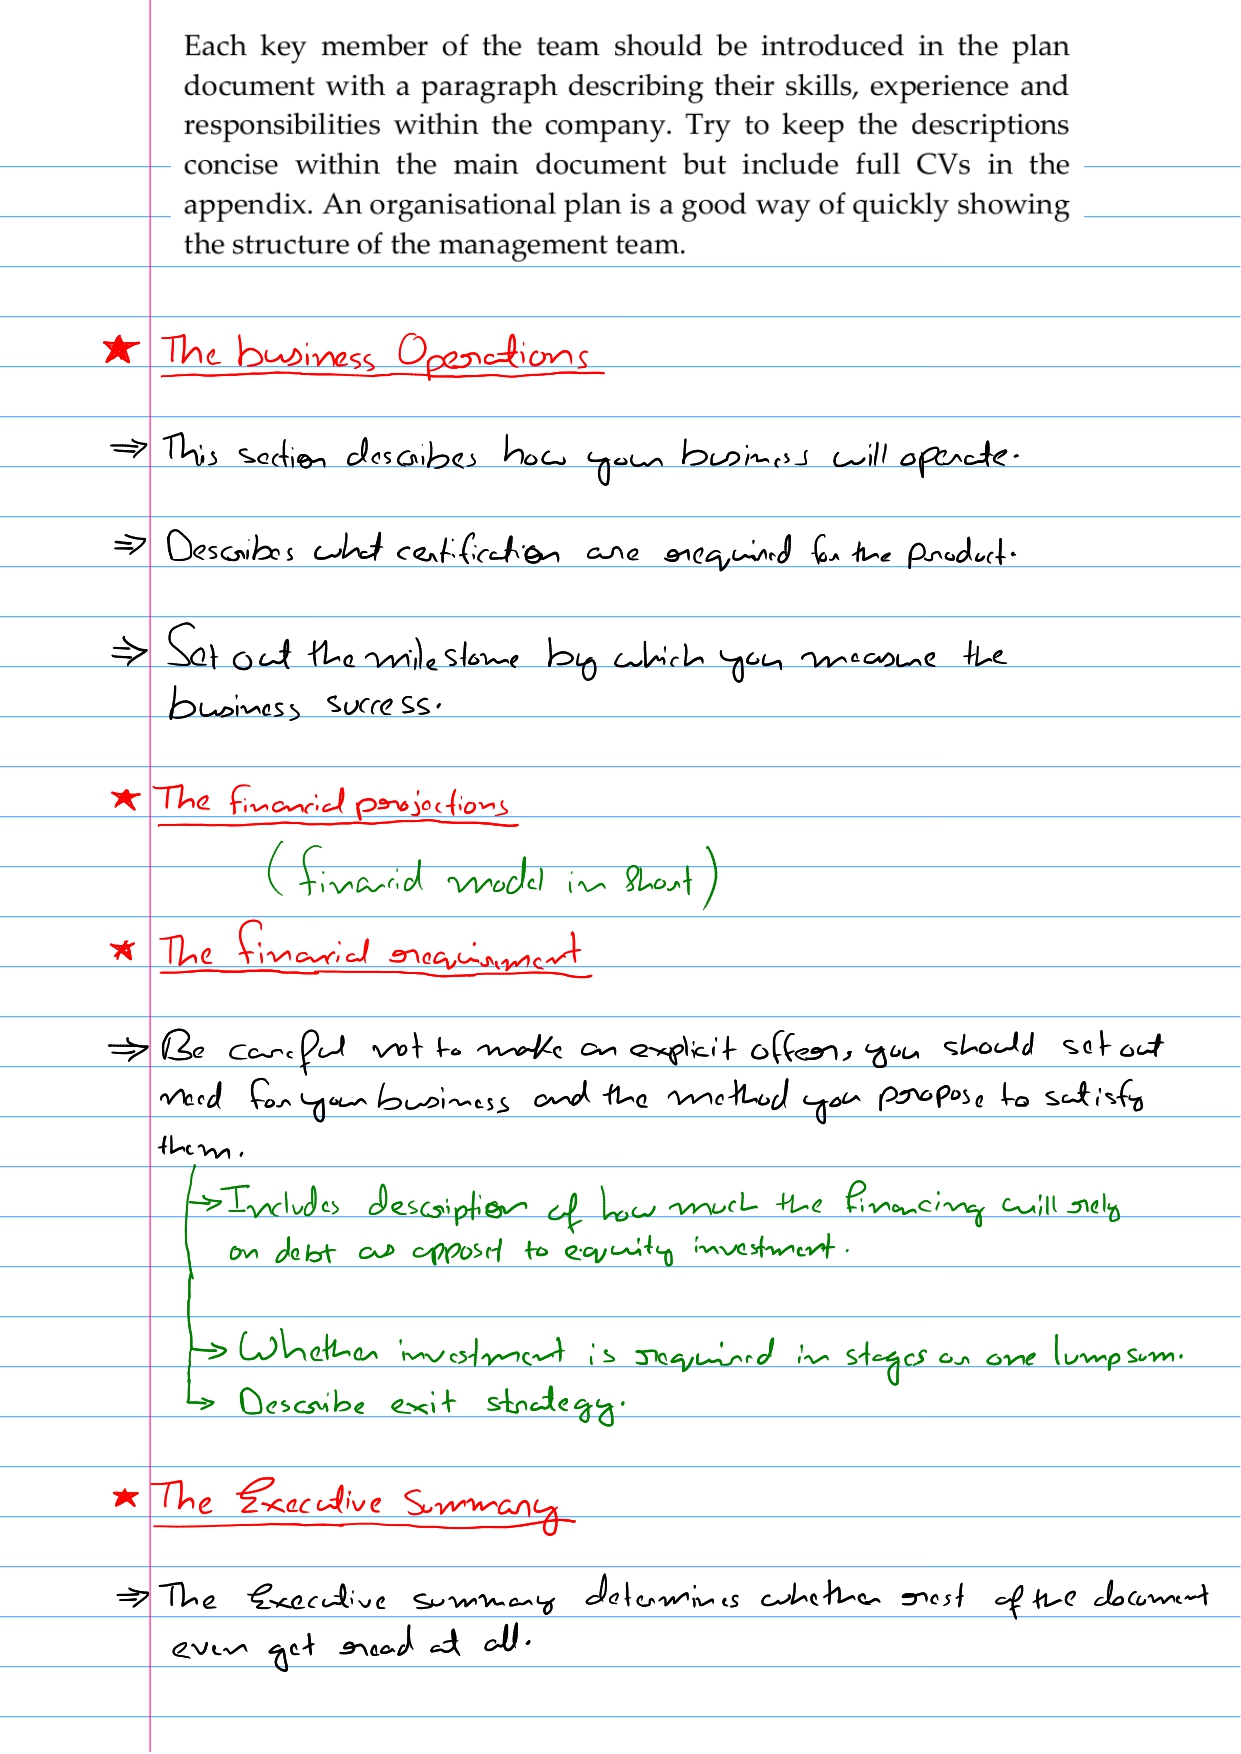 Each key member of the team should be introduced in the plan
document with a paragraph describing their skills, experience and
responsibilities within the company. Try to keep the descriptions
concise within the main document but include full CVs in the
appendix. An organisational plan is a good way of quickly showing
the structure of the management team.
★ The business Operations
⇒ This section describes how your business will operate.
⇒ Describes what certification are required for the product.
⇒ Set out the milestone by which you measure the
business success.
★ The financial projections
(financial model in short)
★ The financial requirement
⇒ Be careful not to make an explicit offer, you should set out
need for your business and the method you propose to satisfy
them.
→ Includes description of how much the financing will rely
on debt as opposed to equity investment.
→ Whether investment is required in stages or one lump sum.
→ Describe exit strategy.
★ The Executive Summary
⇒ The Executive summary determines whether rest of the document
even get read at all.